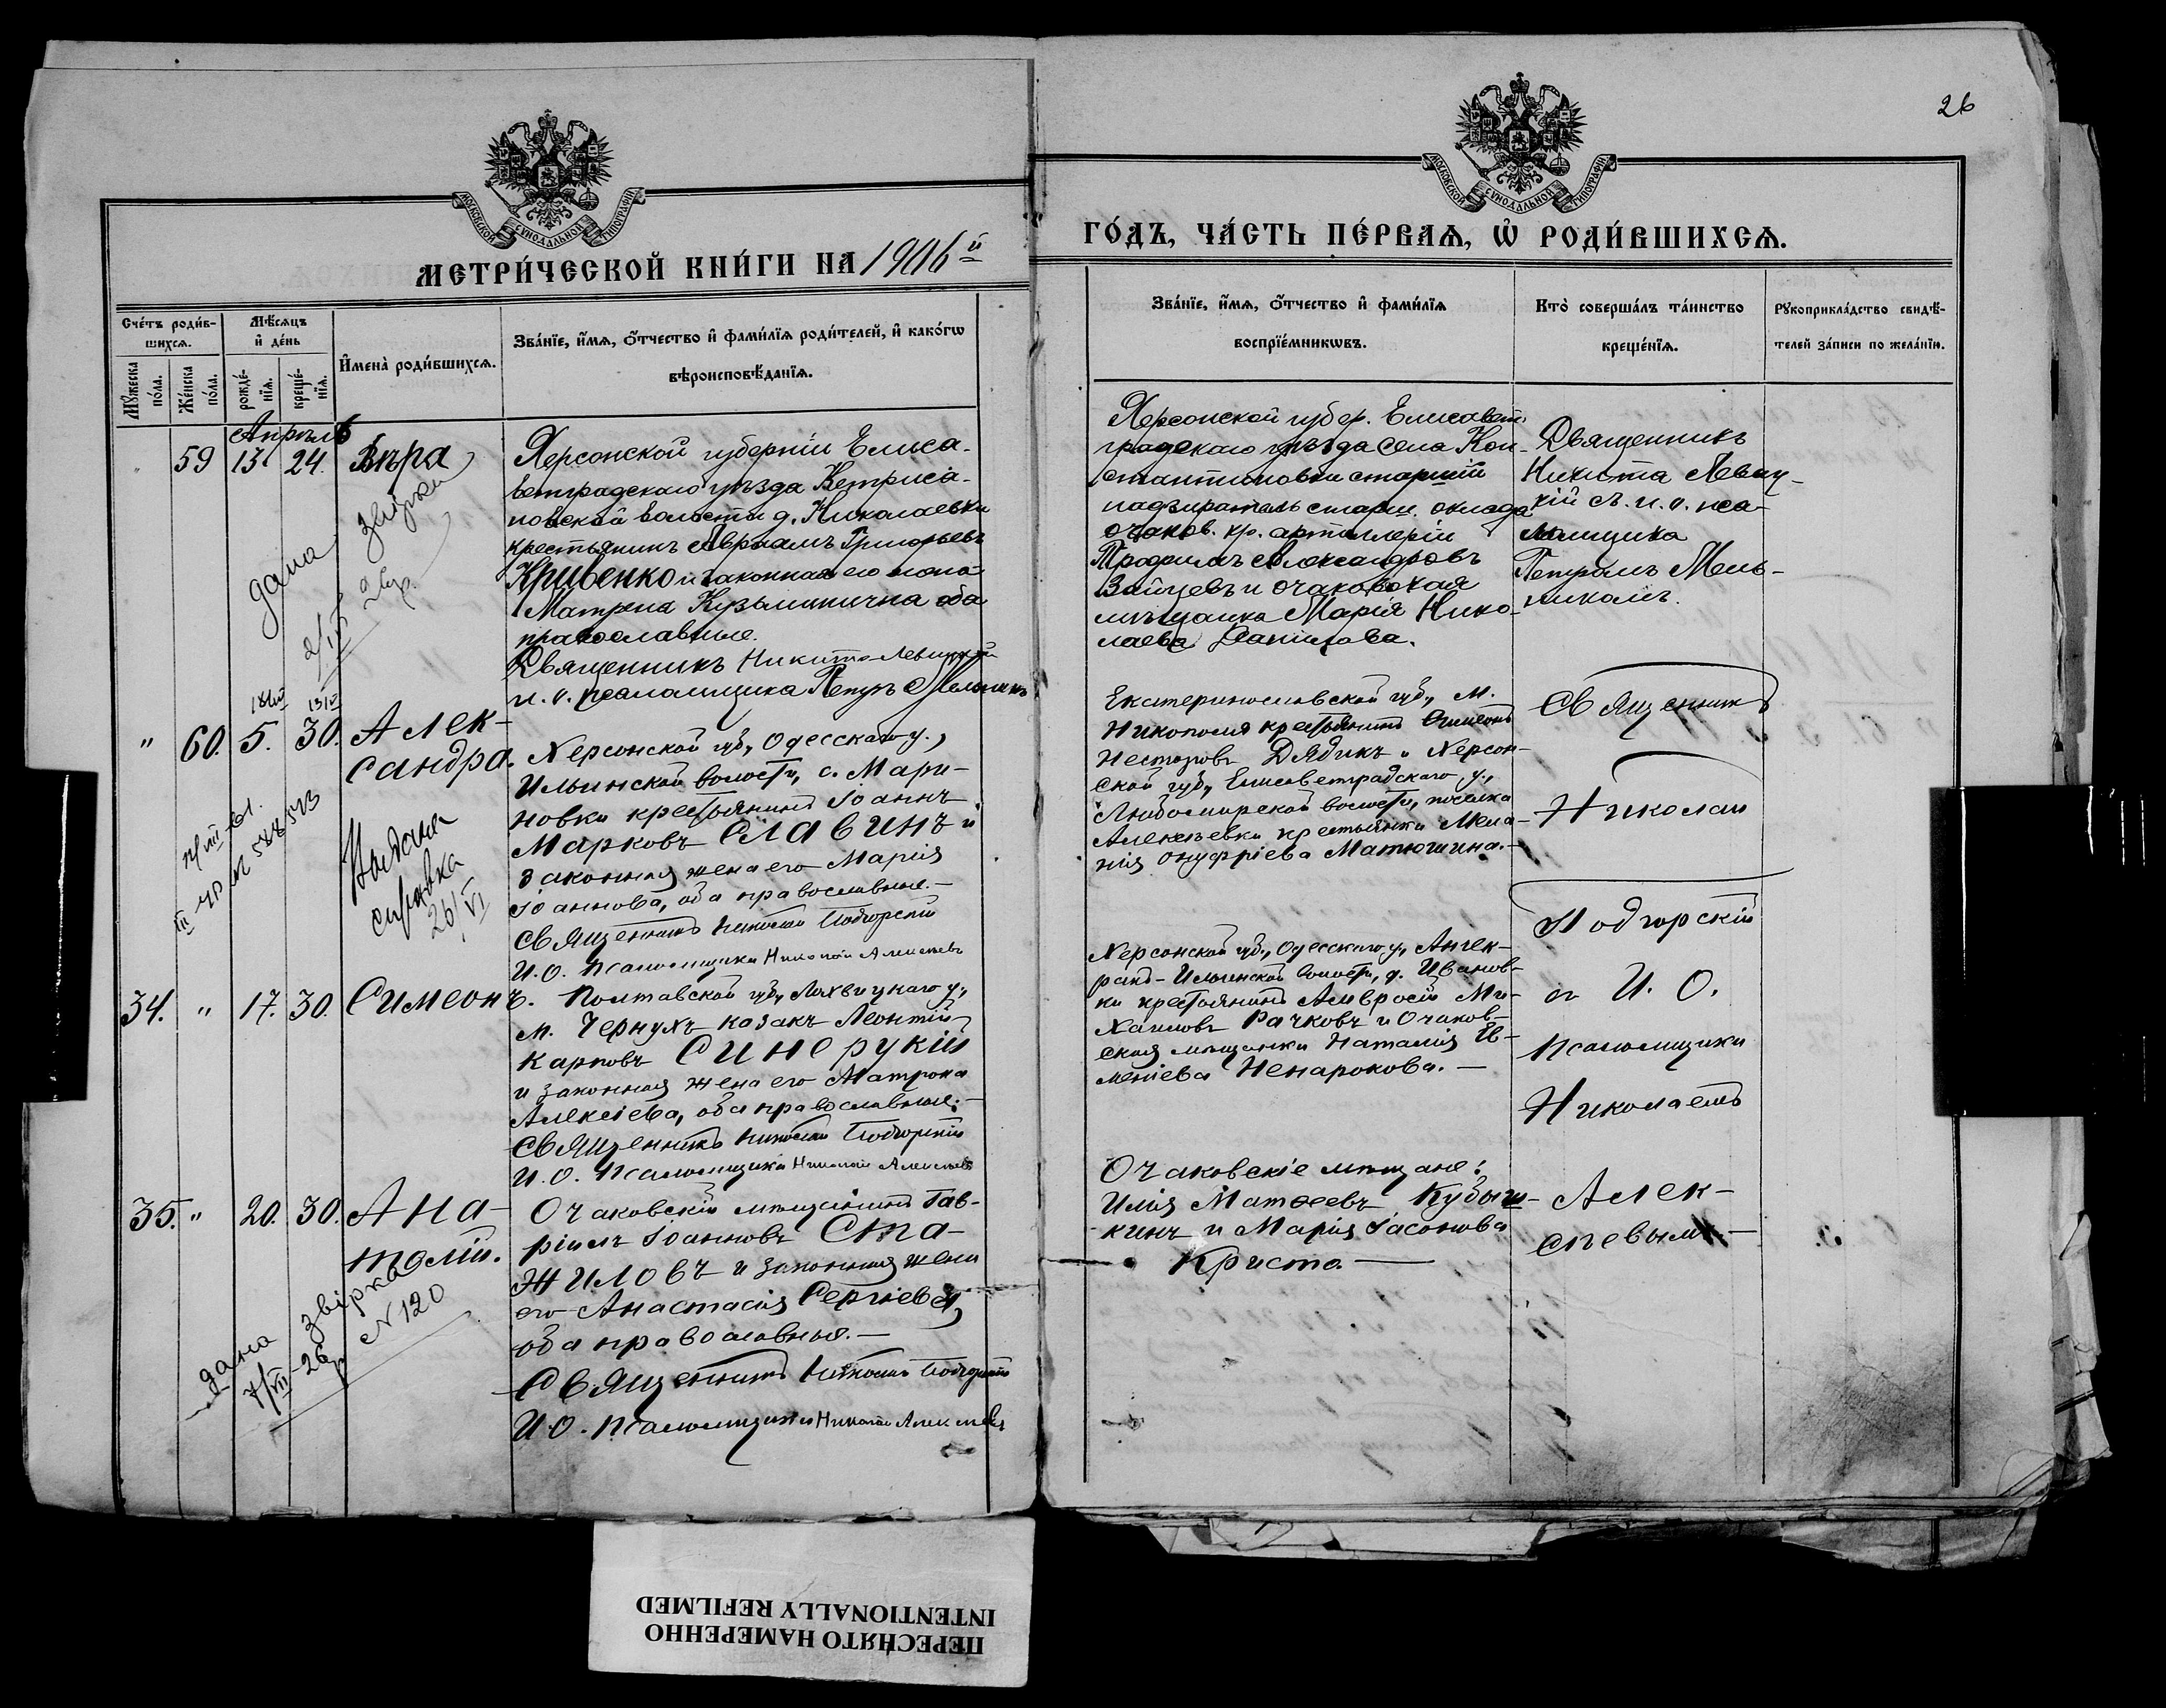 26
МОСКОВСКОЙ СУНОДАЛЬНОЙ ТИПОГРАФІИ
МЕТРИ́ЧЕСКОЙ КНИ́ГИ НА 1906й
Сче́тъ роди́в-
шихсѧ.
Мѣ́сѧцъ
и҆ де́нь
И҆мена̀ роди́вшихсѧ.
Зва́нїе, и҆́мѧ, ѻ҆́тчество и҆ фами́лїѧ роди́телей, и҆ како́гѡ
вѣроисповѣ́данїѧ.
Мꙋ́жеска
по́ла.
Же́нска
по́ла.
рожде́-
нїѧ.
креще́-
нїѧ.
Апрѣль
" 59 13 24. Вѣра
Херсонской губерніи Елиса-
ветградскаго уѣзда Кетриса-
новской волости д. Николаевки
крестьянинъ Авраамъ Григорьевъ
Кривенко и законная его жена
Матрена Кузьминична оба
православные.
Священникъ Никита Левицкій
и. о. псаломщика Петръ Мельникъ
дана звірка
" 60. 5. 30. Алек-
сандра.
Херсонской губ., Одесскаго у.,
Ильинской волости, с. Мари-
новки крестьянинъ Іоаннъ
Марковъ Славинъ и
законная жена его Марія
Іоаннова, оба православные.-
Священникъ Николай Подгорскій
И. О. Псаломщика Николай Алексѣевъ
Выдана
справка
26/VI
34. " 17. 30. Симеонъ.
Полтавской губ., Лохвицкаго у.,
м. Чернухъ казакъ Леонтій
Карповъ Синерукій
и законная жена его Матрона
Алексіева, оба православные.-
Священникъ Николай Подгорскій
И. О. Псаломщика Николай Алексѣевъ
35. " 20. 30. Ана-
толій.
Очаковскій мѣщанинъ Гав-
ріилъ Іоанновъ Ста-
жиловъ и законная жена
его Анастасія Сергіева,
оба православные.-
Священникъ Николай Подгорскій
И. О. Псаломщика Николай Алексѣевъ
дана звірка
7/VII-26р N 120
МОСКОВСКОЙ СУНОДАЛЬНОЙ ТИПОГРАФІИ
ГО́ДЪ, ЧА́СТЬ ПЕ́РВАѦ, Ѡ҆ РОДИ́ВШИХСѦ.
Зва́нїе, и҆́мѧ, ѻ҆́тчество и҆ фами́лїѧ
воспрїе́мникѡвъ.
Кто̀ соверша́лъ та́инство
креще́нїѧ.
Рꙋкоприкла́дство свидѣ́-
телей за́писи по жела́нїю.
Херсонской губер. Елисавет-
градскаго уѣзда села Кон-
стантиновки старшій
надзиратель старш. оклада
очаков. кр. артиллеріи
Трофимъ Александровъ
Зайцевъ и очаковская
мѣщанка Марія Нико-
лаева Данилова.
Священникъ
Никита Левиц-
кій съ и. о. пса-
ломщика
Петромъ Мель-
никомъ.
Екатеринославской губ., м.
Никополя крестьянинъ Симеонъ
Несторовъ Дядикъ и Херсон-
ской губ., Елисаветградскаго у.,
Любомирской волости, поселка
Алексѣевки крестьянка Мела-
нія Онуфріева Матюшина.-
Херсонской губ., Одесскаго у., Анчек-
ракъ-Ильинской волости, д. Иванов-
ки крестьянинъ Амвросій Ми-
хаиловъ Рачковъ и Очаков-
ская мѣщанка Наталія Ев-
меніева Ненарокова.-
Очаковскіе мѣщане:
Илія Матѳеевъ Кубыш-
кинъ и Марія Іасонова
Криста.-
Священникъ
Николай
Подгорскій
съ И. О.
Псаломщика
Николаемъ
Алек-
сѣевымъ.-
ПЕРЕСНЯТО НАМЕРЕННО
INTENTIONALLY REFILMED